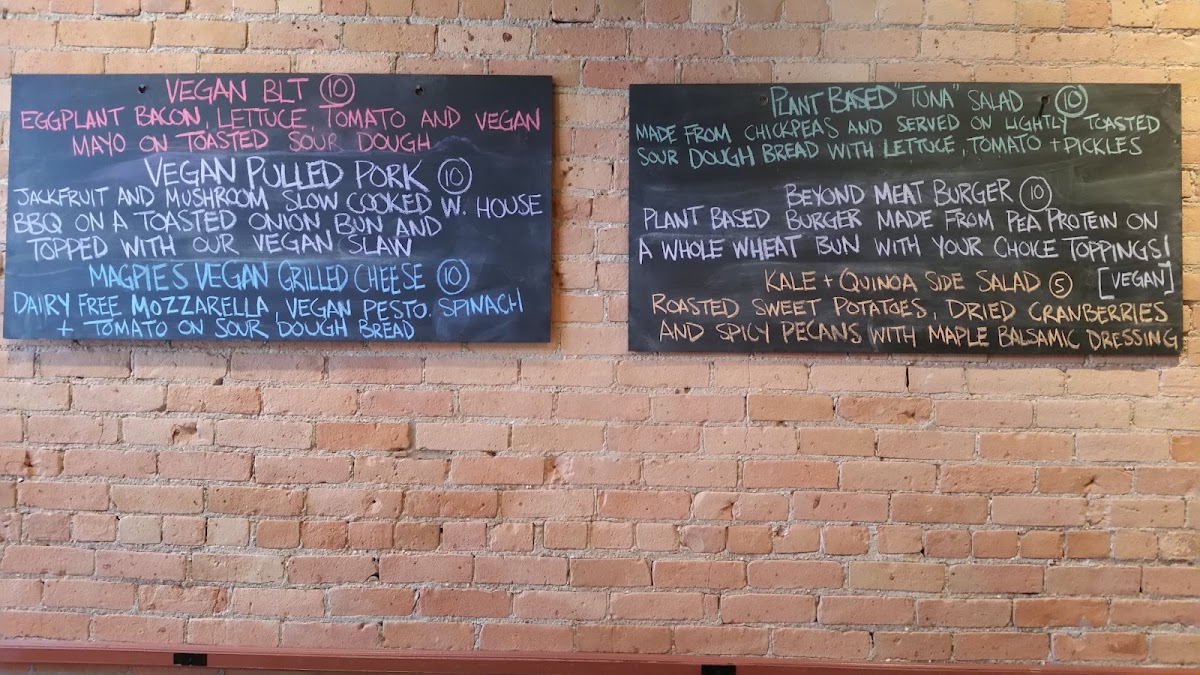 VEGAN BLT 10
EGGPLANT BACON, LETTUCE, TOMATO AND VEGAN
MAYO ON TOASTED SOUR DOUGH
VEGAN PULLED PORK 10
JACKFRUIT AND MUSHROOM SLOW COOKED W. HOUSE
BBQ ON A TOASTED ONION BUN AND
TOPPED WITH OUR VEGAN SLAW
MAGPIES VEGAN GRILLED CHEESE 10
DAIRY FREE MOZZARELLA, VEGAN PESTO. SPINACH
+ TOMATO ON SOUR DOUGH BREAD
PLANT BASED "TUNA" SALAD 10
MADE FROM CHICKPEAS AND SERVED ON LIGHTLY TOASTED
SOUR DOUGH BREAD WITH LETTUCE, TOMATO + PICKLES
BEYOND MEAT BURGER 10
PLANT BASED BURGER MADE FROM PEA PROTEIN ON
A WHOLE WHEAT BUN WITH YOUR CHOICE TOPPINGS!
[VEGAN]
KALE + QUINOA SIDE SALAD 5
ROASTED SWEET POTATOES, DRIED CRANBERRIES
AND SPICY PECANS WITH MAPLE BALSAMIC DRESSING